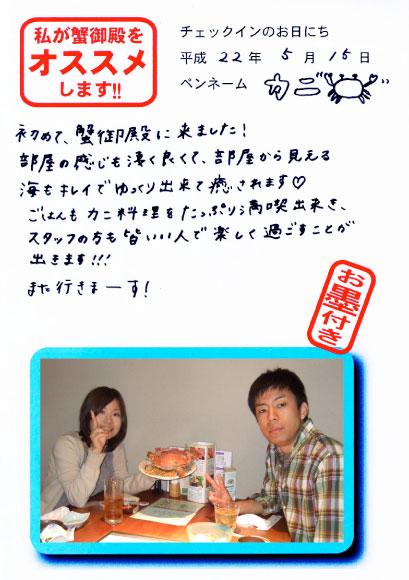 私が蟹御殿を
オススメ
します!!
チェックインのお日にち
平成 22 年 5 月 15 日
ペンネーム カニ
初めて、蟹御殿に来ました!
部屋の感じも凄く良くて、部屋から見える
海もキレイでゆっくり出来て癒されます♡
ごはんもカニ料理をたっぷり満喫出来き、
スタッフの方も皆いい人で楽しく過ごすことが
出きます!!!
また行きまーす!
お墨付き